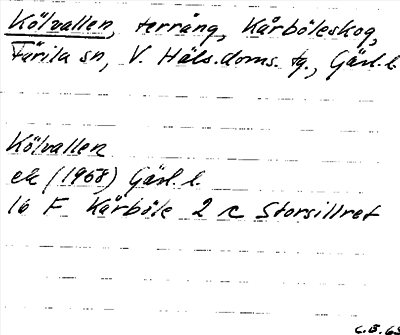 Kölvallen, terräng, Kårböleskog,
Färila sn, V. Häls. doms. tg., Gävl. l.
Kölvallen
ek (1968) Gävl. l.
16 F Kårböle 2 c Storsillret
C.B. 69